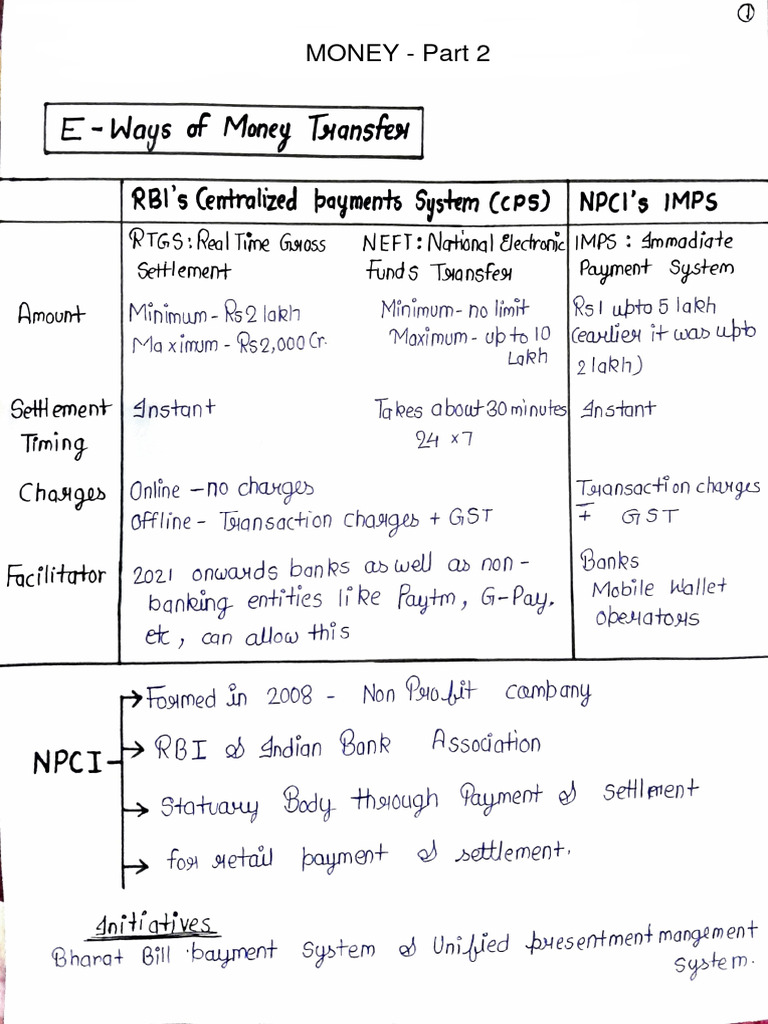 ①
MONEY - Part 2
E-Ways of Money Transfer
RBI's Centralized payments System (CPS)
NPCI's IMPS
RTGS: Real Time Gross
Settlement
NEFT: National Electronic
Funds Transfer
IMPS : Immadiate
Payment System
Amount
Minimum - Rs 2 lakh
Maximum - Rs 2,000 Cr.
Minimum - no limit
Maximum - up to 10
Lakh
Rs 1 upto 5 lakh
(earlier it was upto
2 lakh)
Settlement
Timing
Instant
Takes about 30 minutes
24 x7
Instant
Charges
Online - no charges
Offline - Transaction charges + GST
Transaction charges
+ GST
Facilitator
2021 onwards banks as well as non-
banking entities like Paytm, G-Pay.
etc, can allow this
Banks
Mobile Wallet
operators
NPCI
Formed in 2008 - Non Profit company
RBI & Indian Bank Association
Statuary Body through Payment & settlment
for retail payment & settlement.
Initiatives
Bharat Bill payment System & Unified presentment mangement
System.